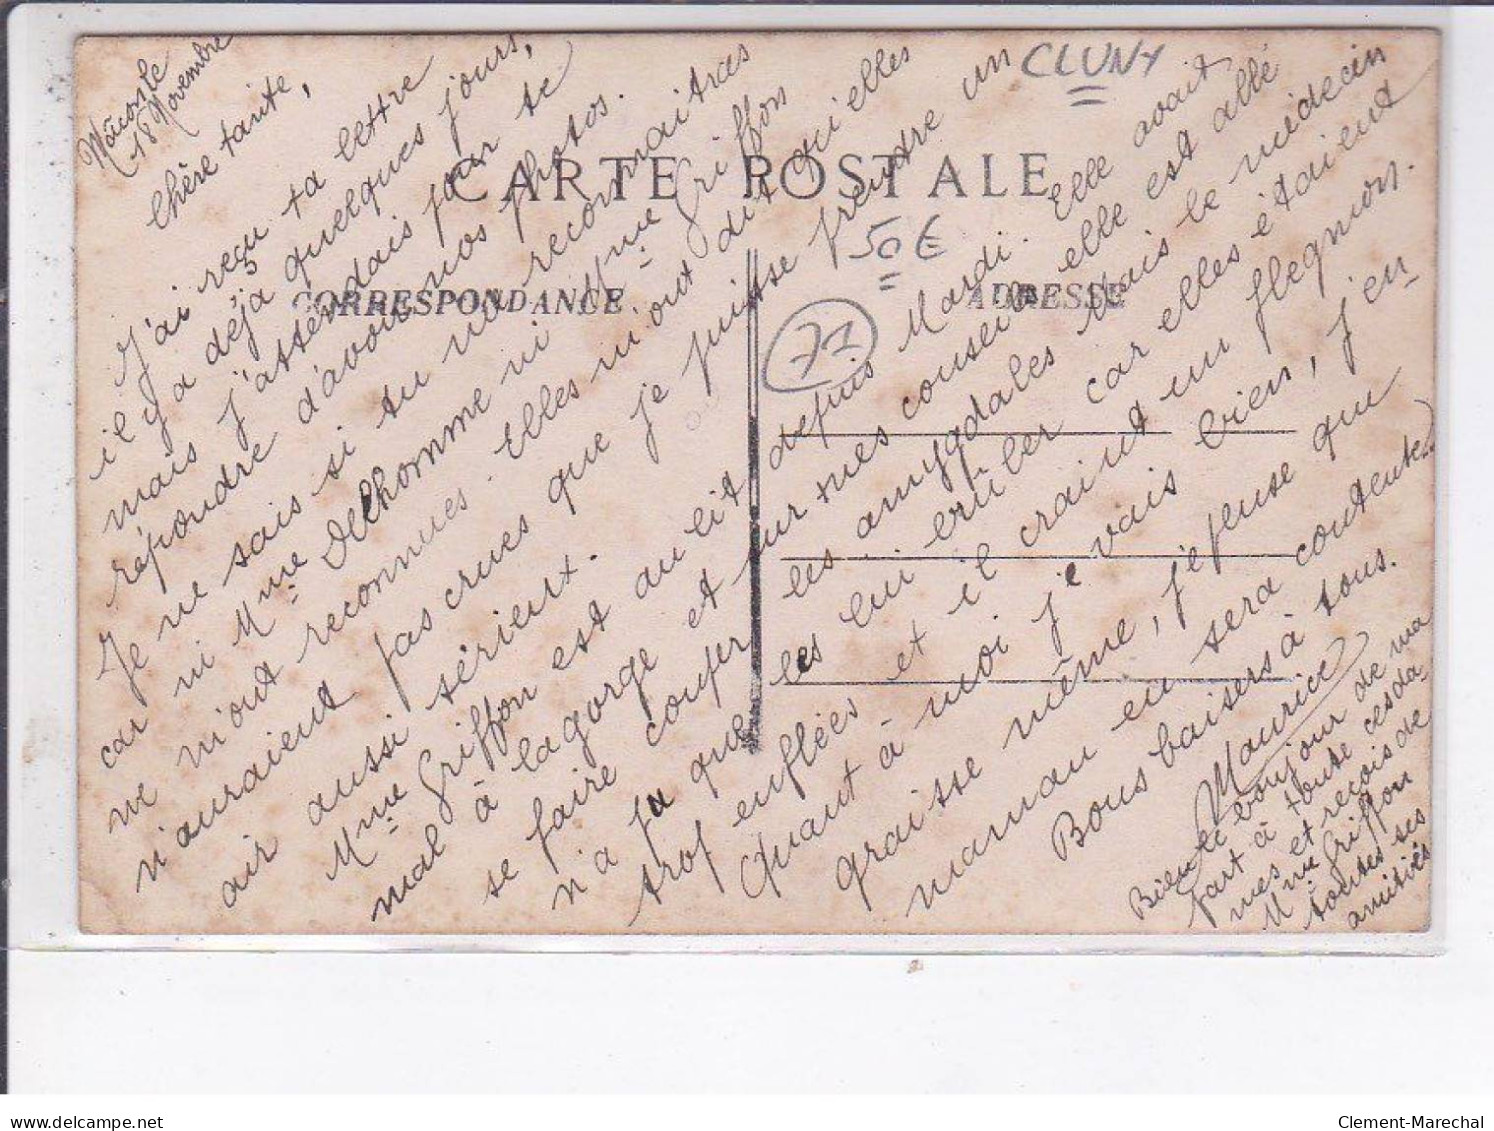 Mâcon le
18 Novembre
Chère tante,
J'ai reçu ta lettre
il y a déjà quelques jours,
mais j'attendais pour te
répondre d'avoir nos photos.
Je ne sais si tu me reconnaitras
car ni Mme Delhomme ni Mme Griffon
ne m'ont reconnues. Elles m'ont dit qu'elles
n'auraient pas crues que je puisse prendre un
air aussi sérieux.
Mme Griffon est au lit depuis Mardi. Elle avait
mal à la gorge et sur mes conseils elle est allé
se faire couper les amygdales Mais le médecin
n'a pu que les lui brûler car elles étaient
trop enflées et il craint un flegmon.
Quant à moi je vais bien, j'en-
graisse même, je pense que
maman en sera contente.
Bons baisers à tous.
Maurice
Bien le bonjour de ma
part à toute ces da
mes et reçois de
Mme Griffon
toutes ses
amitiés
CLUNY
CARTE POSTALE
50 €
CORRESPONDANCE
ADRESSE
71
delcampe.net
Clement-Marechal